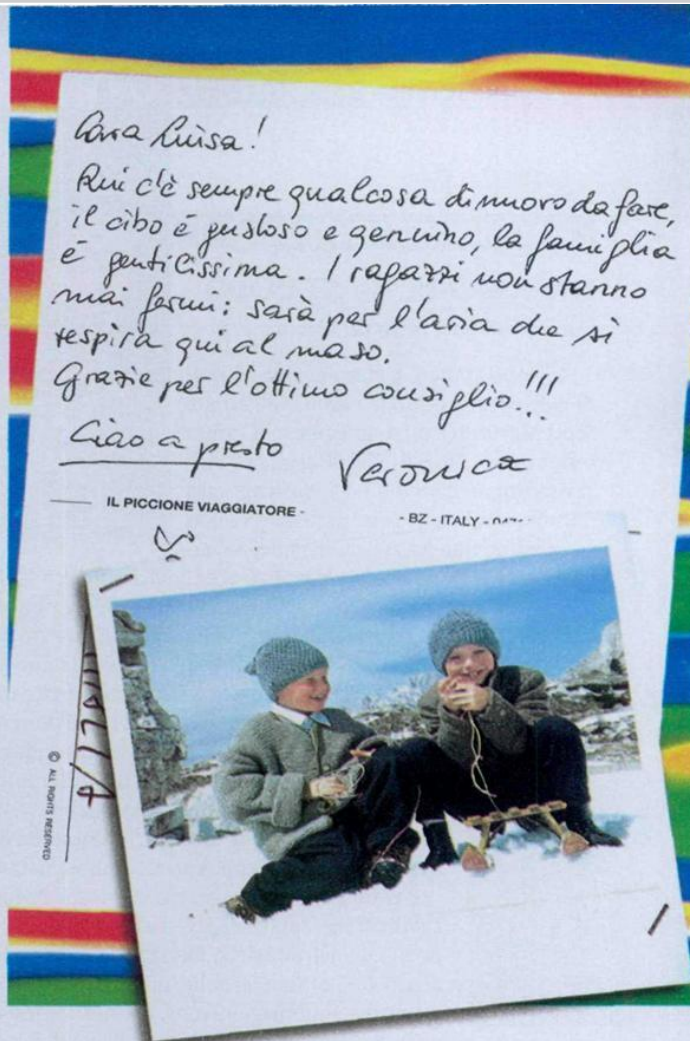 Cara Luisa!
Qui c'è sempre qualcosa di nuovo da fare,
il cibo è gustoso e genuino, la famiglia
è gentilissima. I ragazzi non stanno
mai fermi: sarà per l'aria che si
respira qui al maso.
Grazie per l'ottimo consiglio!!!
Ciao a presto
Veronica
IL PICCIONE VIAGGIATORE -
- BZ - ITALY -
© ALL RIGHTS RESERVED